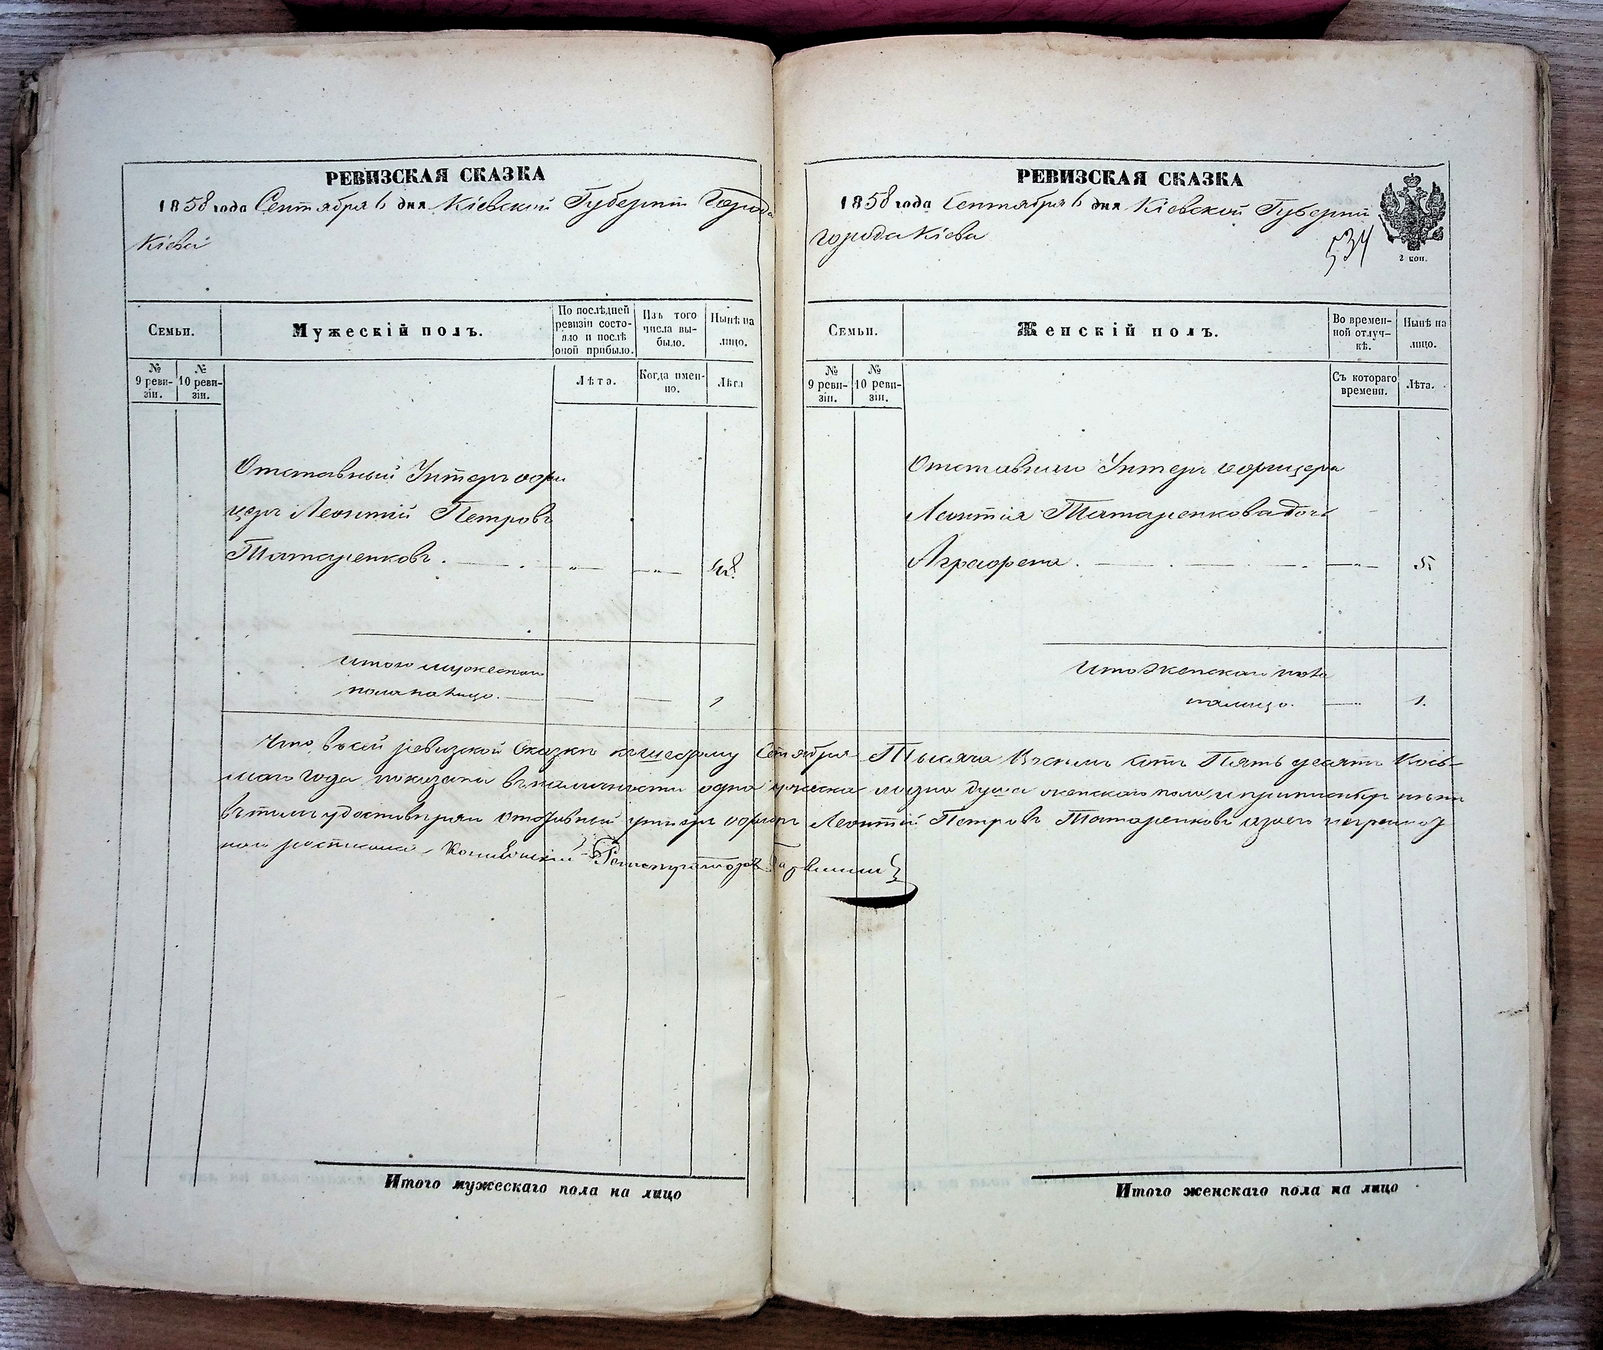 РЕВИЗСКАЯ СКАЗКА
1858 года Сентября 6 дня Кіевской Губерніи Города
Кіева
Семьи.
Мужескій полъ.
По послѣдней ревизіи состояло и послѣ оной прибыло.
Изъ того числа выбыло.
Нынѣ на лицо.
№ 9 ревизіи.
№ 10 ревизіи.
Лѣта.
Когда именно.
Лѣта
Отставный Унтеръ офи
церъ Леонтій Петровъ
Татаренковъ. 48.
Итого мужеска
пола на лицо. 1
Итого мужескаго пола на лицо
РЕВИЗСКАЯ СКАЗКА
1858 года Сентября 6 дня Кіевской Губерніи
города Кіева
534
2 коп.
Семьи.
Женскій полъ.
Во временной отлучкѣ.
Нынѣ на лицо.
№ 9 ревизіи.
№ 10 ревизіи.
Съ котораго времени.
Лѣта.
Отставнаго Унтеръ офицера
Леонтія Татаренкова дочь
Аграфена. 5.
Итого женскаго пола
на лицо. 1.
Что въ сей ревизской сказкѣ къ шестому Сентября Тысяча Восемь сотъ Пять десятъ Вось-
маго года показаны въ наличности одна мужеска и одна душа женскаго пола и
въ томъ удостовѣряю отставный унтеръ офицеръ Леонтій Петровъ Татаренковъ а за его неграмот
Итого женскаго пола на лицо